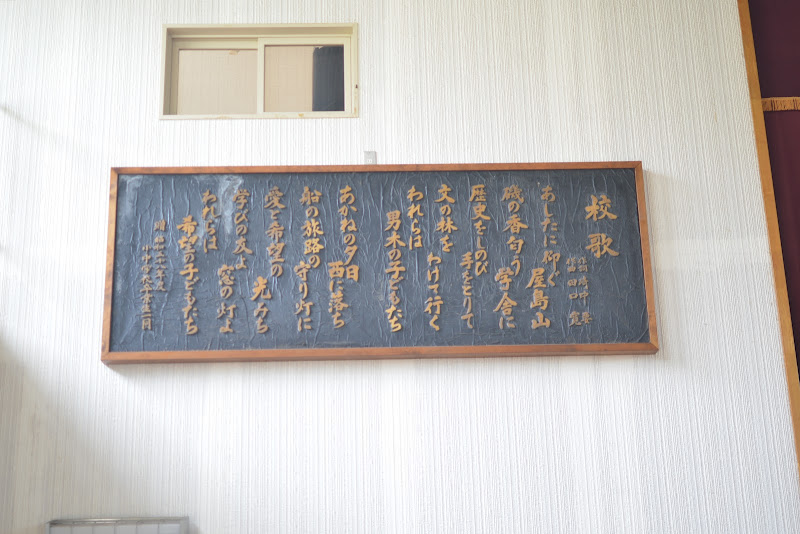 校歌
作詞 ��中 要
作曲 田口 寛
あしたに仰ぐ 屋島山
磯の香匂う 学舎に
歴史をしのび 手をとりて
文の林を わけて行く
われらは 男木の子どもたち
あかねの夕日 西に落ち
船の旅路の 守り灯に
愛と希望の 光みち
学びの友よ 窓の灯よ
われらは 希望の子どもたち
贈 昭和五十八年度
小中学九卒業生一同